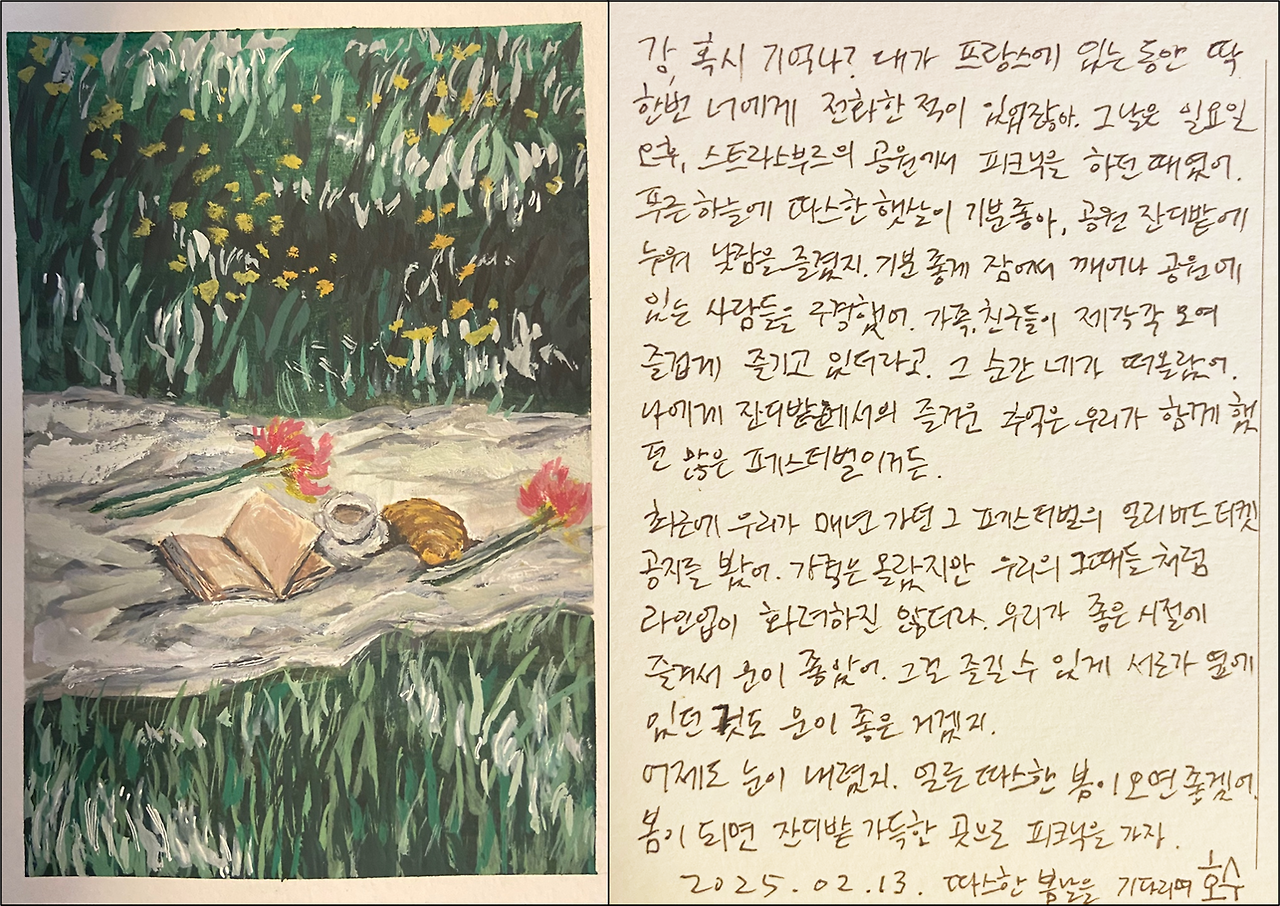 강, 혹시 기억나? 내가 프랑스에 있는 동안 딱
한번 너에게 전화한 적이 있었잖아. 그날은 일요일
오후, 스트라스부르의 공원에서 피크닉을 하던 때였어.
푸른 하늘에 따스한 햇살이 기분 좋아, 공원 잔디밭에
누워 낮잠을 즐겼지. 기분 좋게 잠에서 깨어나 공원에
있는 사람들을 구경했어. 가족, 친구들이 제각각 모여
즐겁게 즐기고 있더라고. 그 순간 네가 떠올랐어.
나에게 잔디밭에서의 즐거운 추억은 우리가 함께 했
던 많은 페스티벌이거든.
최근에 우리가 매년 가던 그 페스티벌의 얼리버드 티켓
공지를 봤어. 가격은 올랐지만 우리의 그때들처럼
라인업이 화려하진 않더라. 우리가 좋은 시절에
즐겨서 운이 좋았어. 그걸 즐길 수 있게 서로가 옆에
있던 것도 운이 좋은 거겠지.
어제도 눈이 내렸지. 얼른 따스한 봄이 오면 좋겠어.
봄이 되면 잔디밭 가득한 곳으로 피크닉을 가자.
2025.02.13. 따스한 봄날을 기다리며 호수